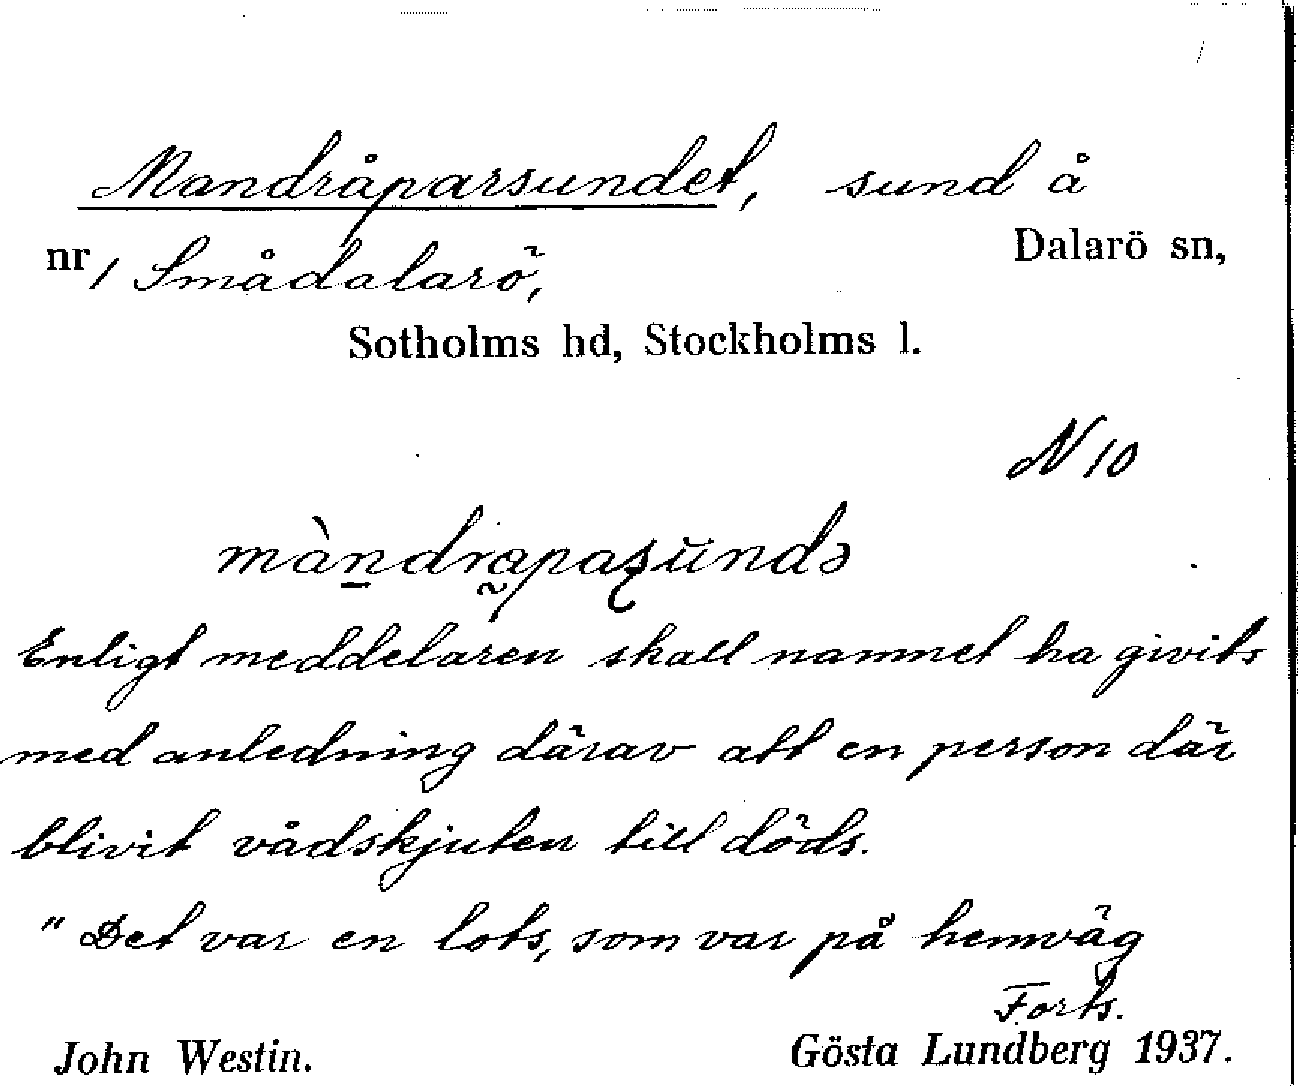 Mandråparsundet, sund å
nr 1 Smådalarö, Dalarö sn,
Sotholms hd, Stockholms l.
N 10
Enligt meddelaren skall namnet ha givits
med anledning därav att en person där
blivit vådskjuten till döds.
"Det var en lots, som var på hemväg
Forts.
John Westin. Gösta Lundberg 1937.